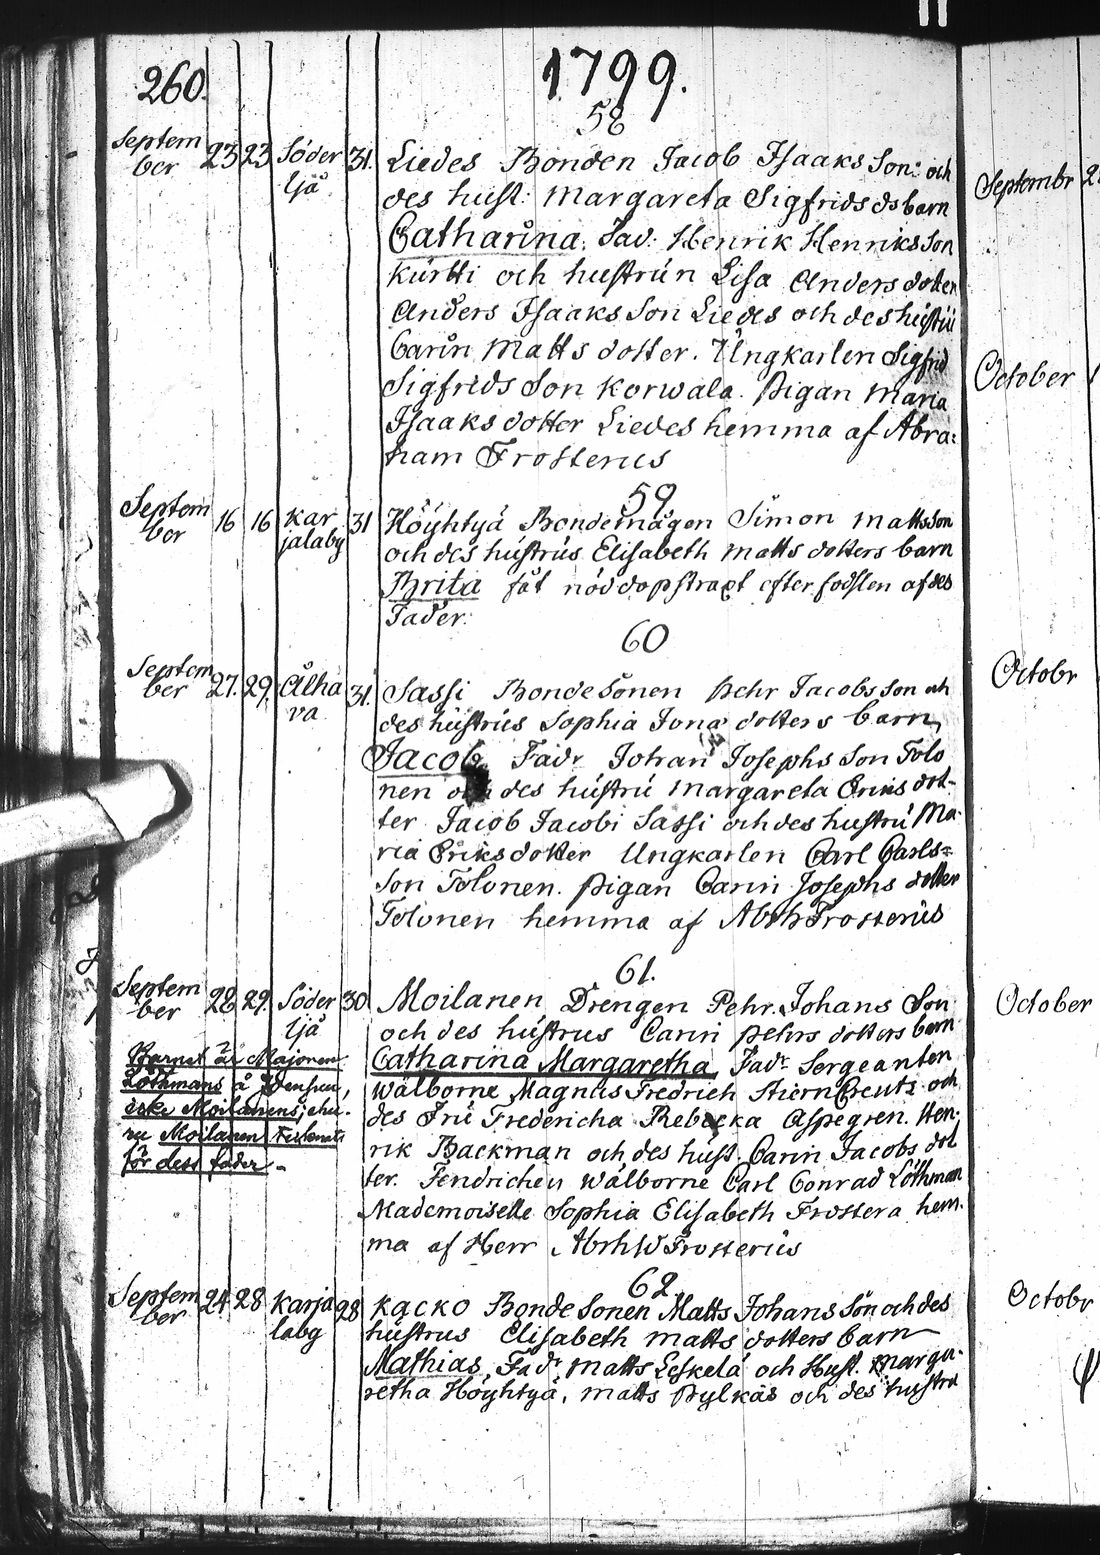 260.
1799.
58
Septem
ber 23 23 Söder
ljå 31. Liedes Bonden Jacob Isaaks Son: och
des hust: Margareta Sigfrids ds barn
Catharina. Fad: Henrik Henriks Son
Kurtti och hustrun Lisa Anders dotter
Anders Isaaks Son Liedes och des hustru
Carin Matts dotter. Ungkarlen Sigfrid
Sigfrids Son Korwala. Pigan Maria
Isaaks dotter Liedes hemma af Abra:
ham Frosterus
59
Septem
ber 16 16 Kar
jalaby 31 Höyhtyä Bondemågen Simon Mattsson
och des hustrus Elisabeth Matts dotters barn
Brita fåt nöddop straxt efter födslen af des
Fader.
60
Septem
ber 27. 29. Alha
va 31. Sassi Bonde Sonen Pehr Jacobs Son och
des hustrus Sophia Jona dotters barn
Jacob Fadr Johan Josephs Son Tolo
nen och des hustru Margareta Eriks dot-
ter Jacob Jacobi Sassi och des hustru Ma-
ria Eriks dotter Ungkarlen Carl Carls=
Son Tolonen. Pigan Carin Josephs dotter
Tolonen hemma af Abrh Frosterus
61.
Septem
ber 28 29. Söder
ljå 30 Moilanen Drengen Pehr Johans Son
och des hustrus Carin Pehrs dotters barn
Catharina Margaretha Fadr Sergeanten
Wälborne Magnus Fredrich StiernCreutz och
des Fru Fredericha Rebecka Aspegren. Hen-
rik Backman och des hust. Carin Jacobs dot
ter. Fendrichen Wälborne Carl Conrad Löthman
Mademoiselle Sophia Elisabeth Frostera hem-
ma af Herr AbrhW Frosterus
Barnet är Majoren
Lothmans å
icke Moilanens; ehu-
ru Moilanen
för dess fader -
62.
Septem
ber 24 28 Karja
laby 28 Kacko Bonde Sonen Matts Johans Son och des
hustrus Elisabeth Matts dotters barn
Mathias, Fadr Matts Leskelä och Hust. Marga-
retha Höyhtyä, Matts Pylkäs och des hustru
Septembr
October
Octobr
October
Octobr